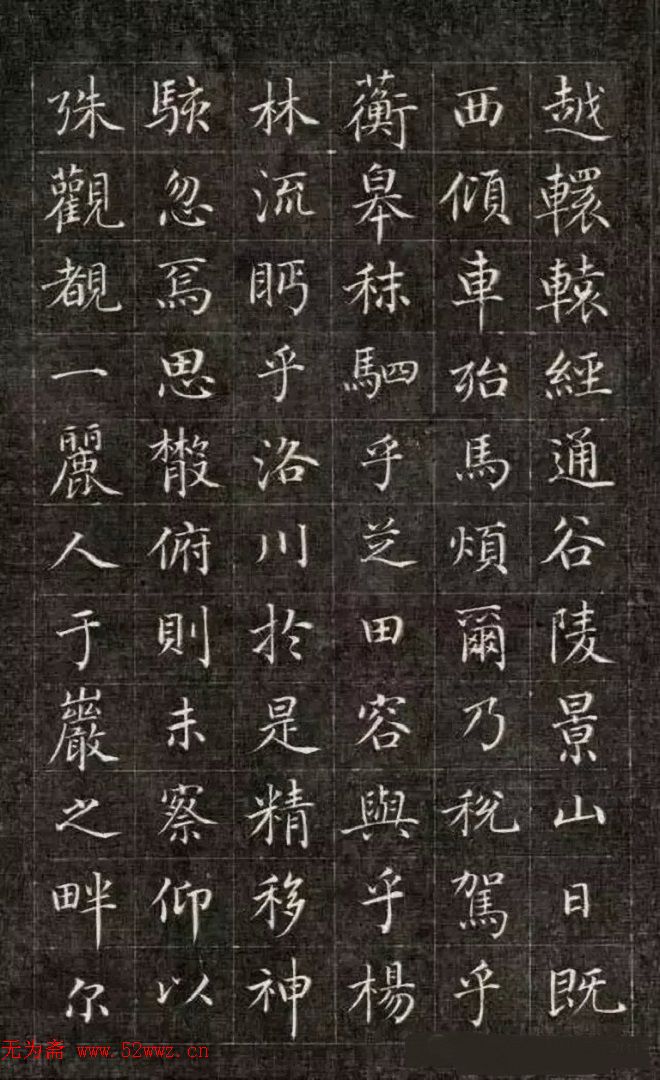 越轘轅經通谷陵景山日既
西傾車殆馬煩爾乃稅駕乎
蘅皋秣駟乎芝田容與乎楊
林流眄乎洛川於是精移神
駭忽焉思散俯則未察仰以
殊觀覩一麗人于巖之畔尔
无为斋 www.52wwz.cn